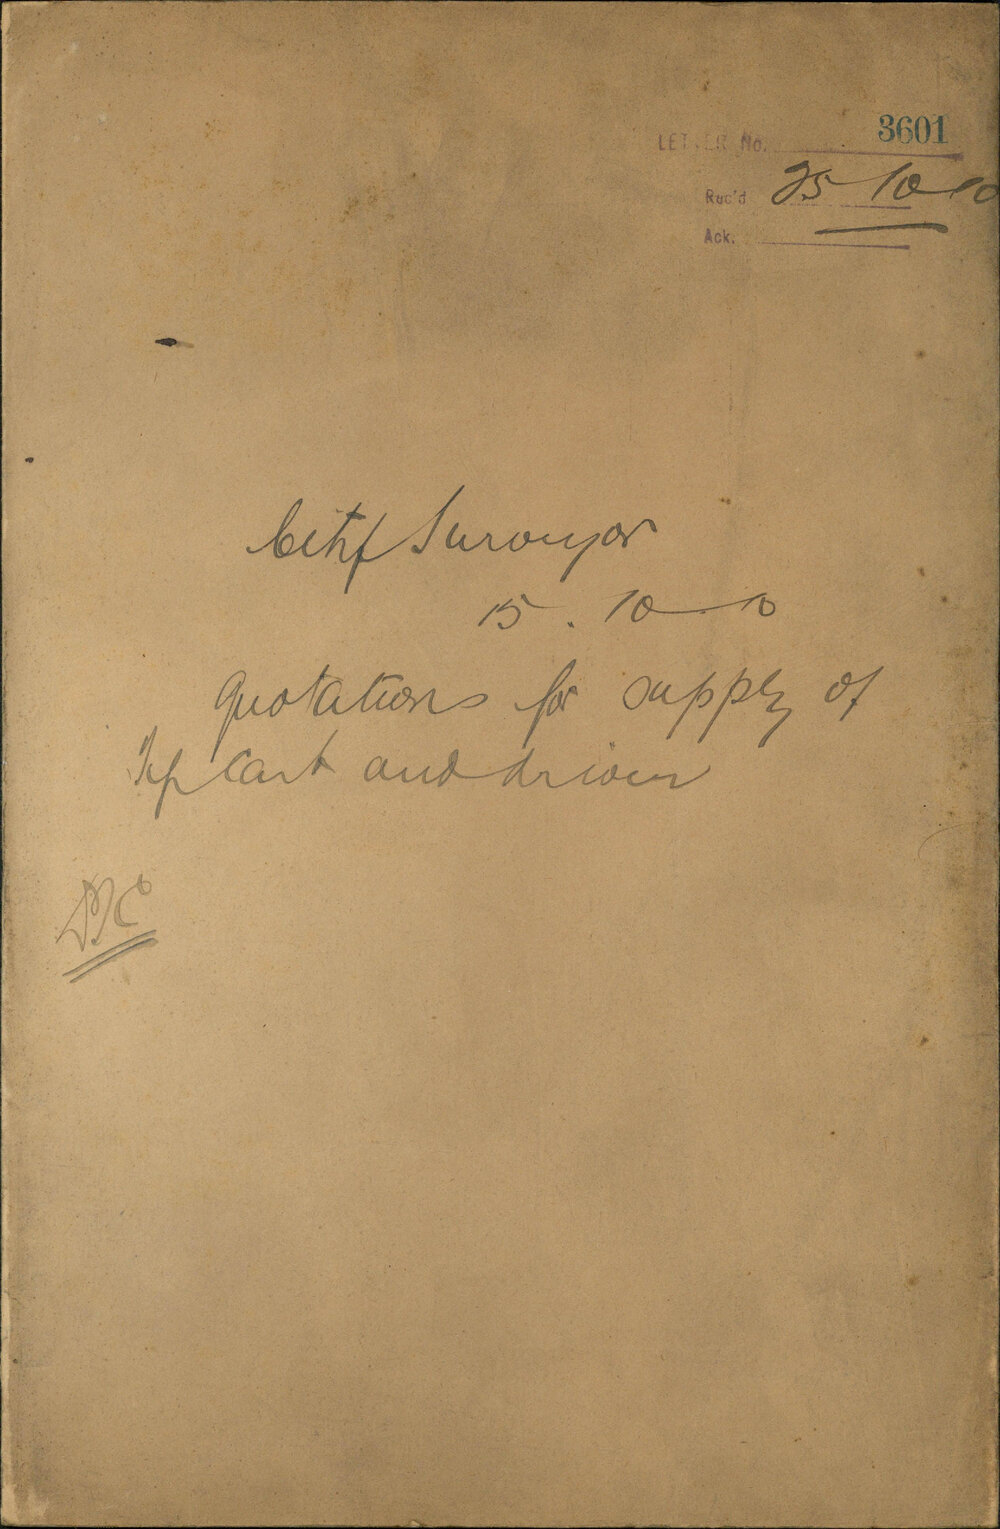 LETTER No. 3601
Rec'd 25-10-10
Ack.
City Surveyor
15.10-10
Quotations for supply of
Tip Cart and driver